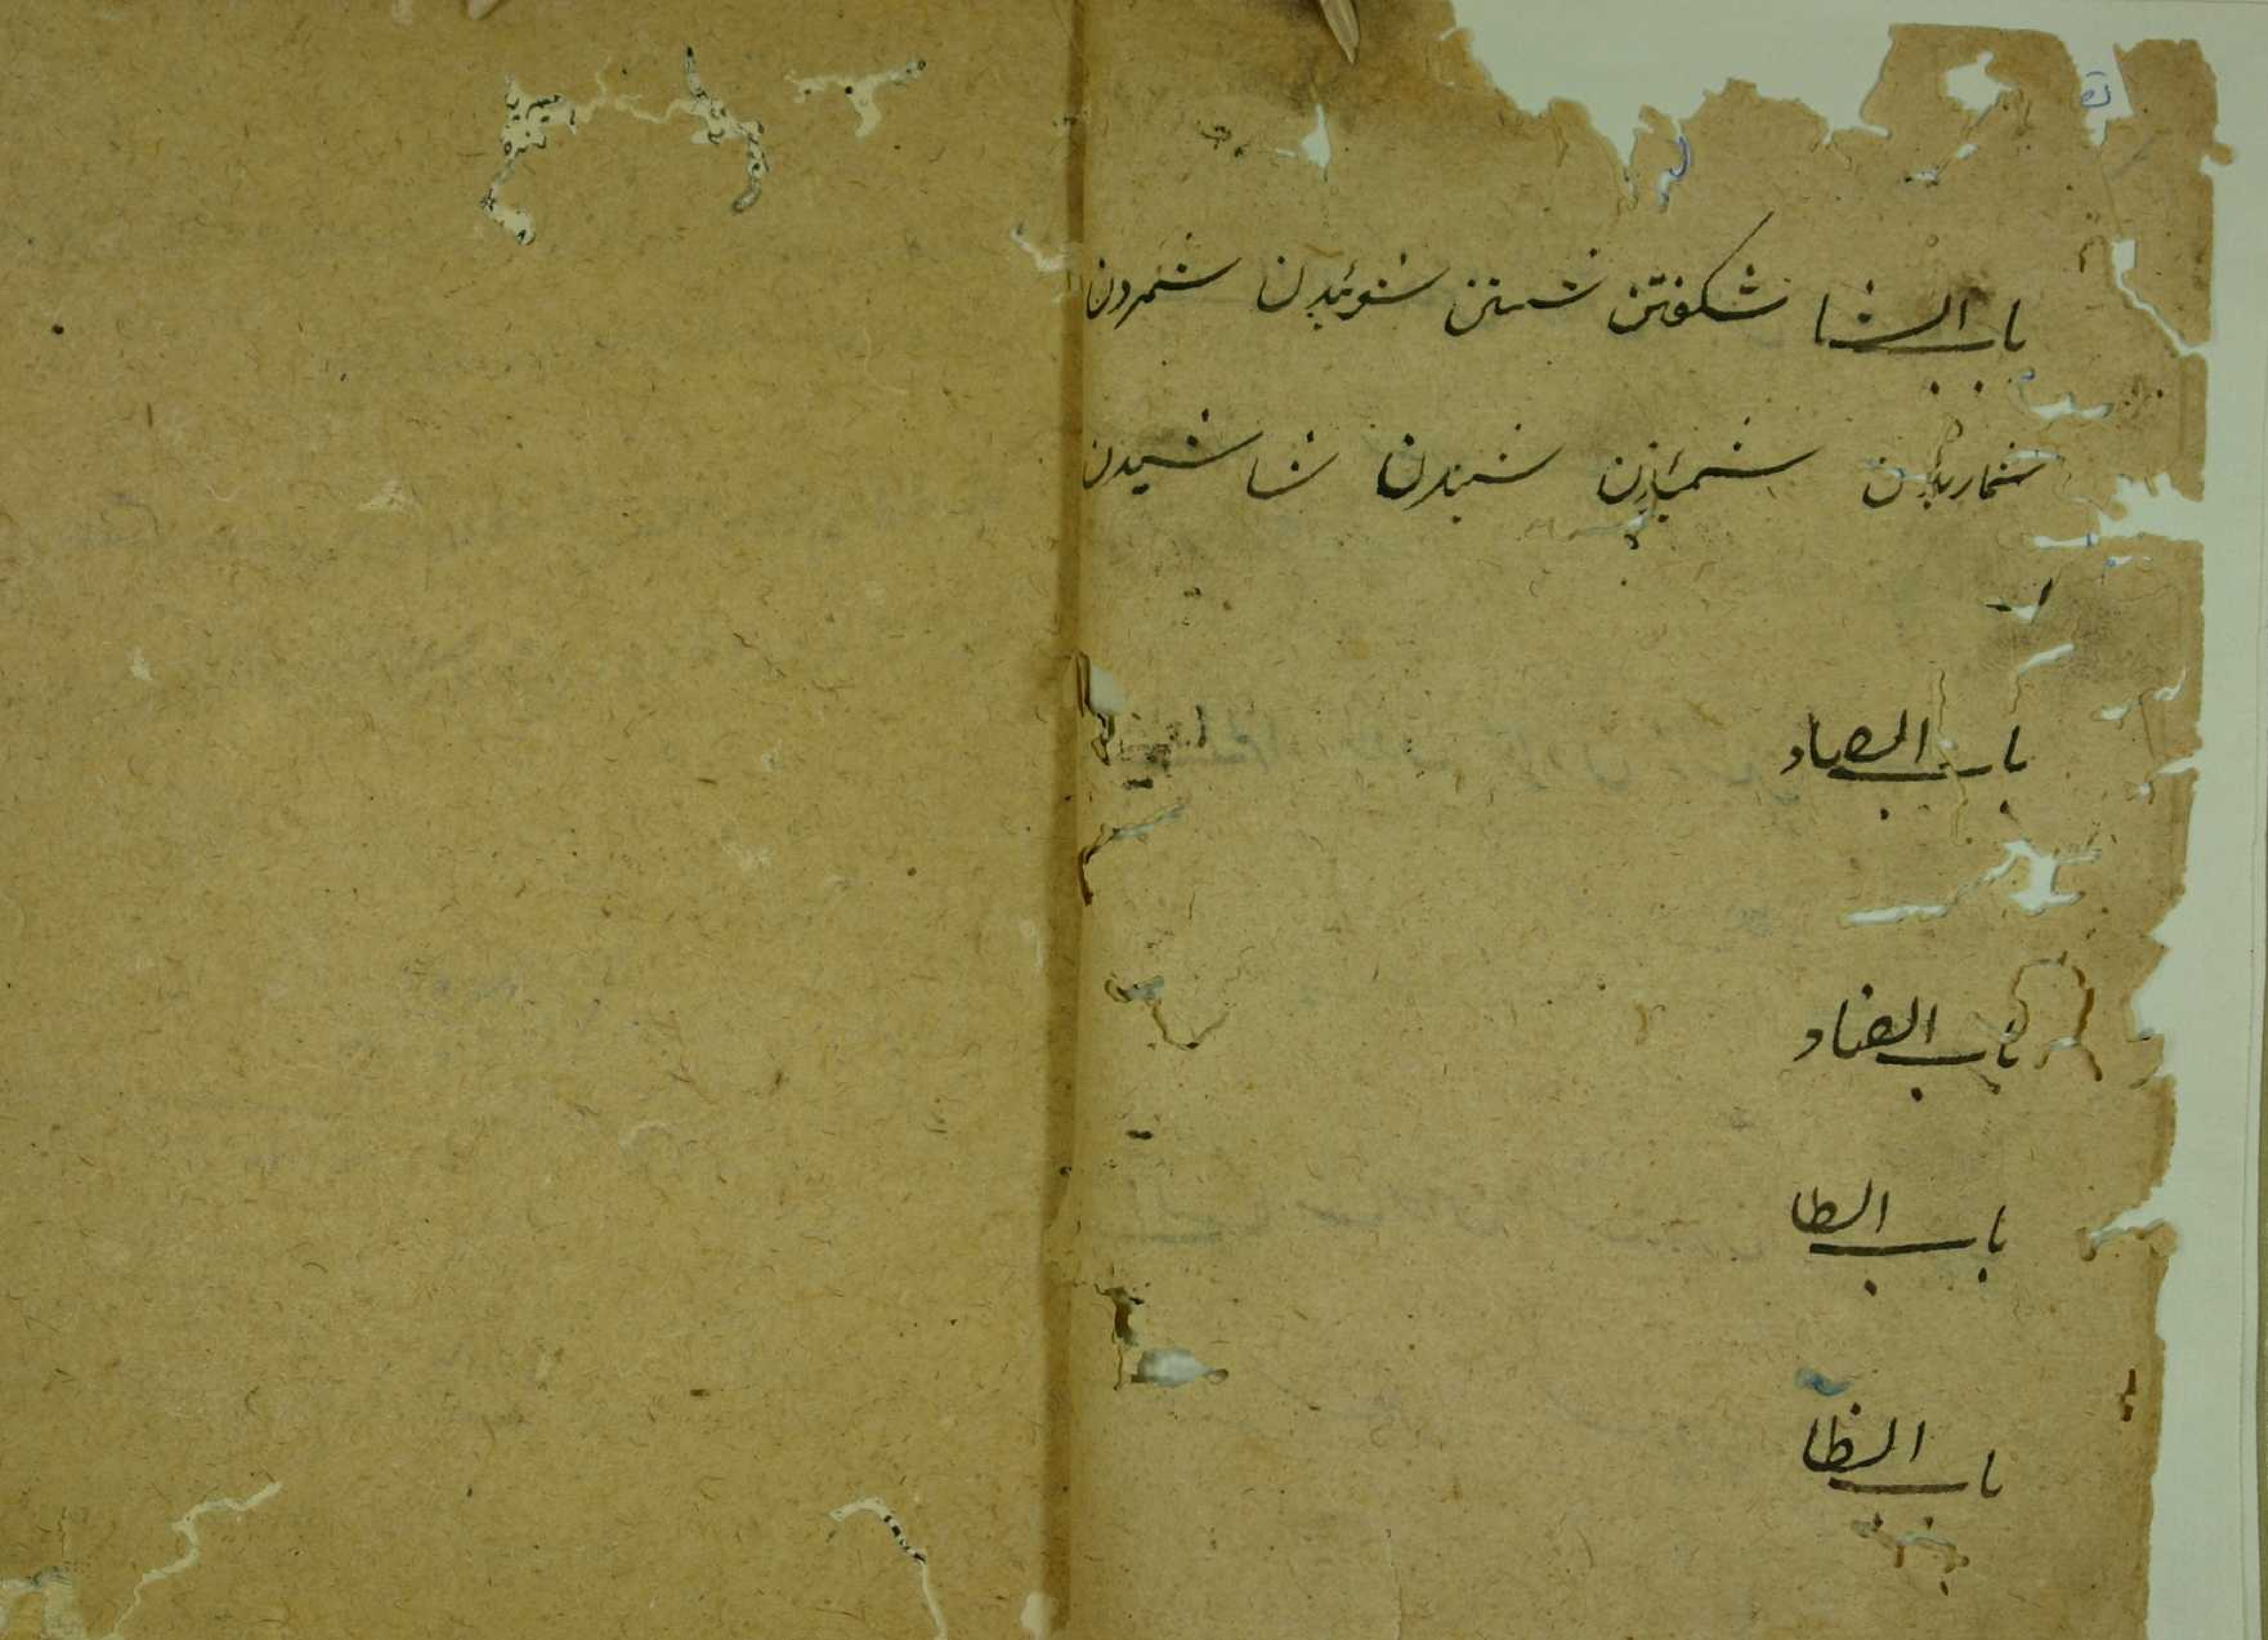 باب الشا شكفتن شستن شوئیدن شمردن
شماریدن شمیدن شنیدن شاشیدن
باب الصاد
باب الضاد
باب الطا
باب الظا